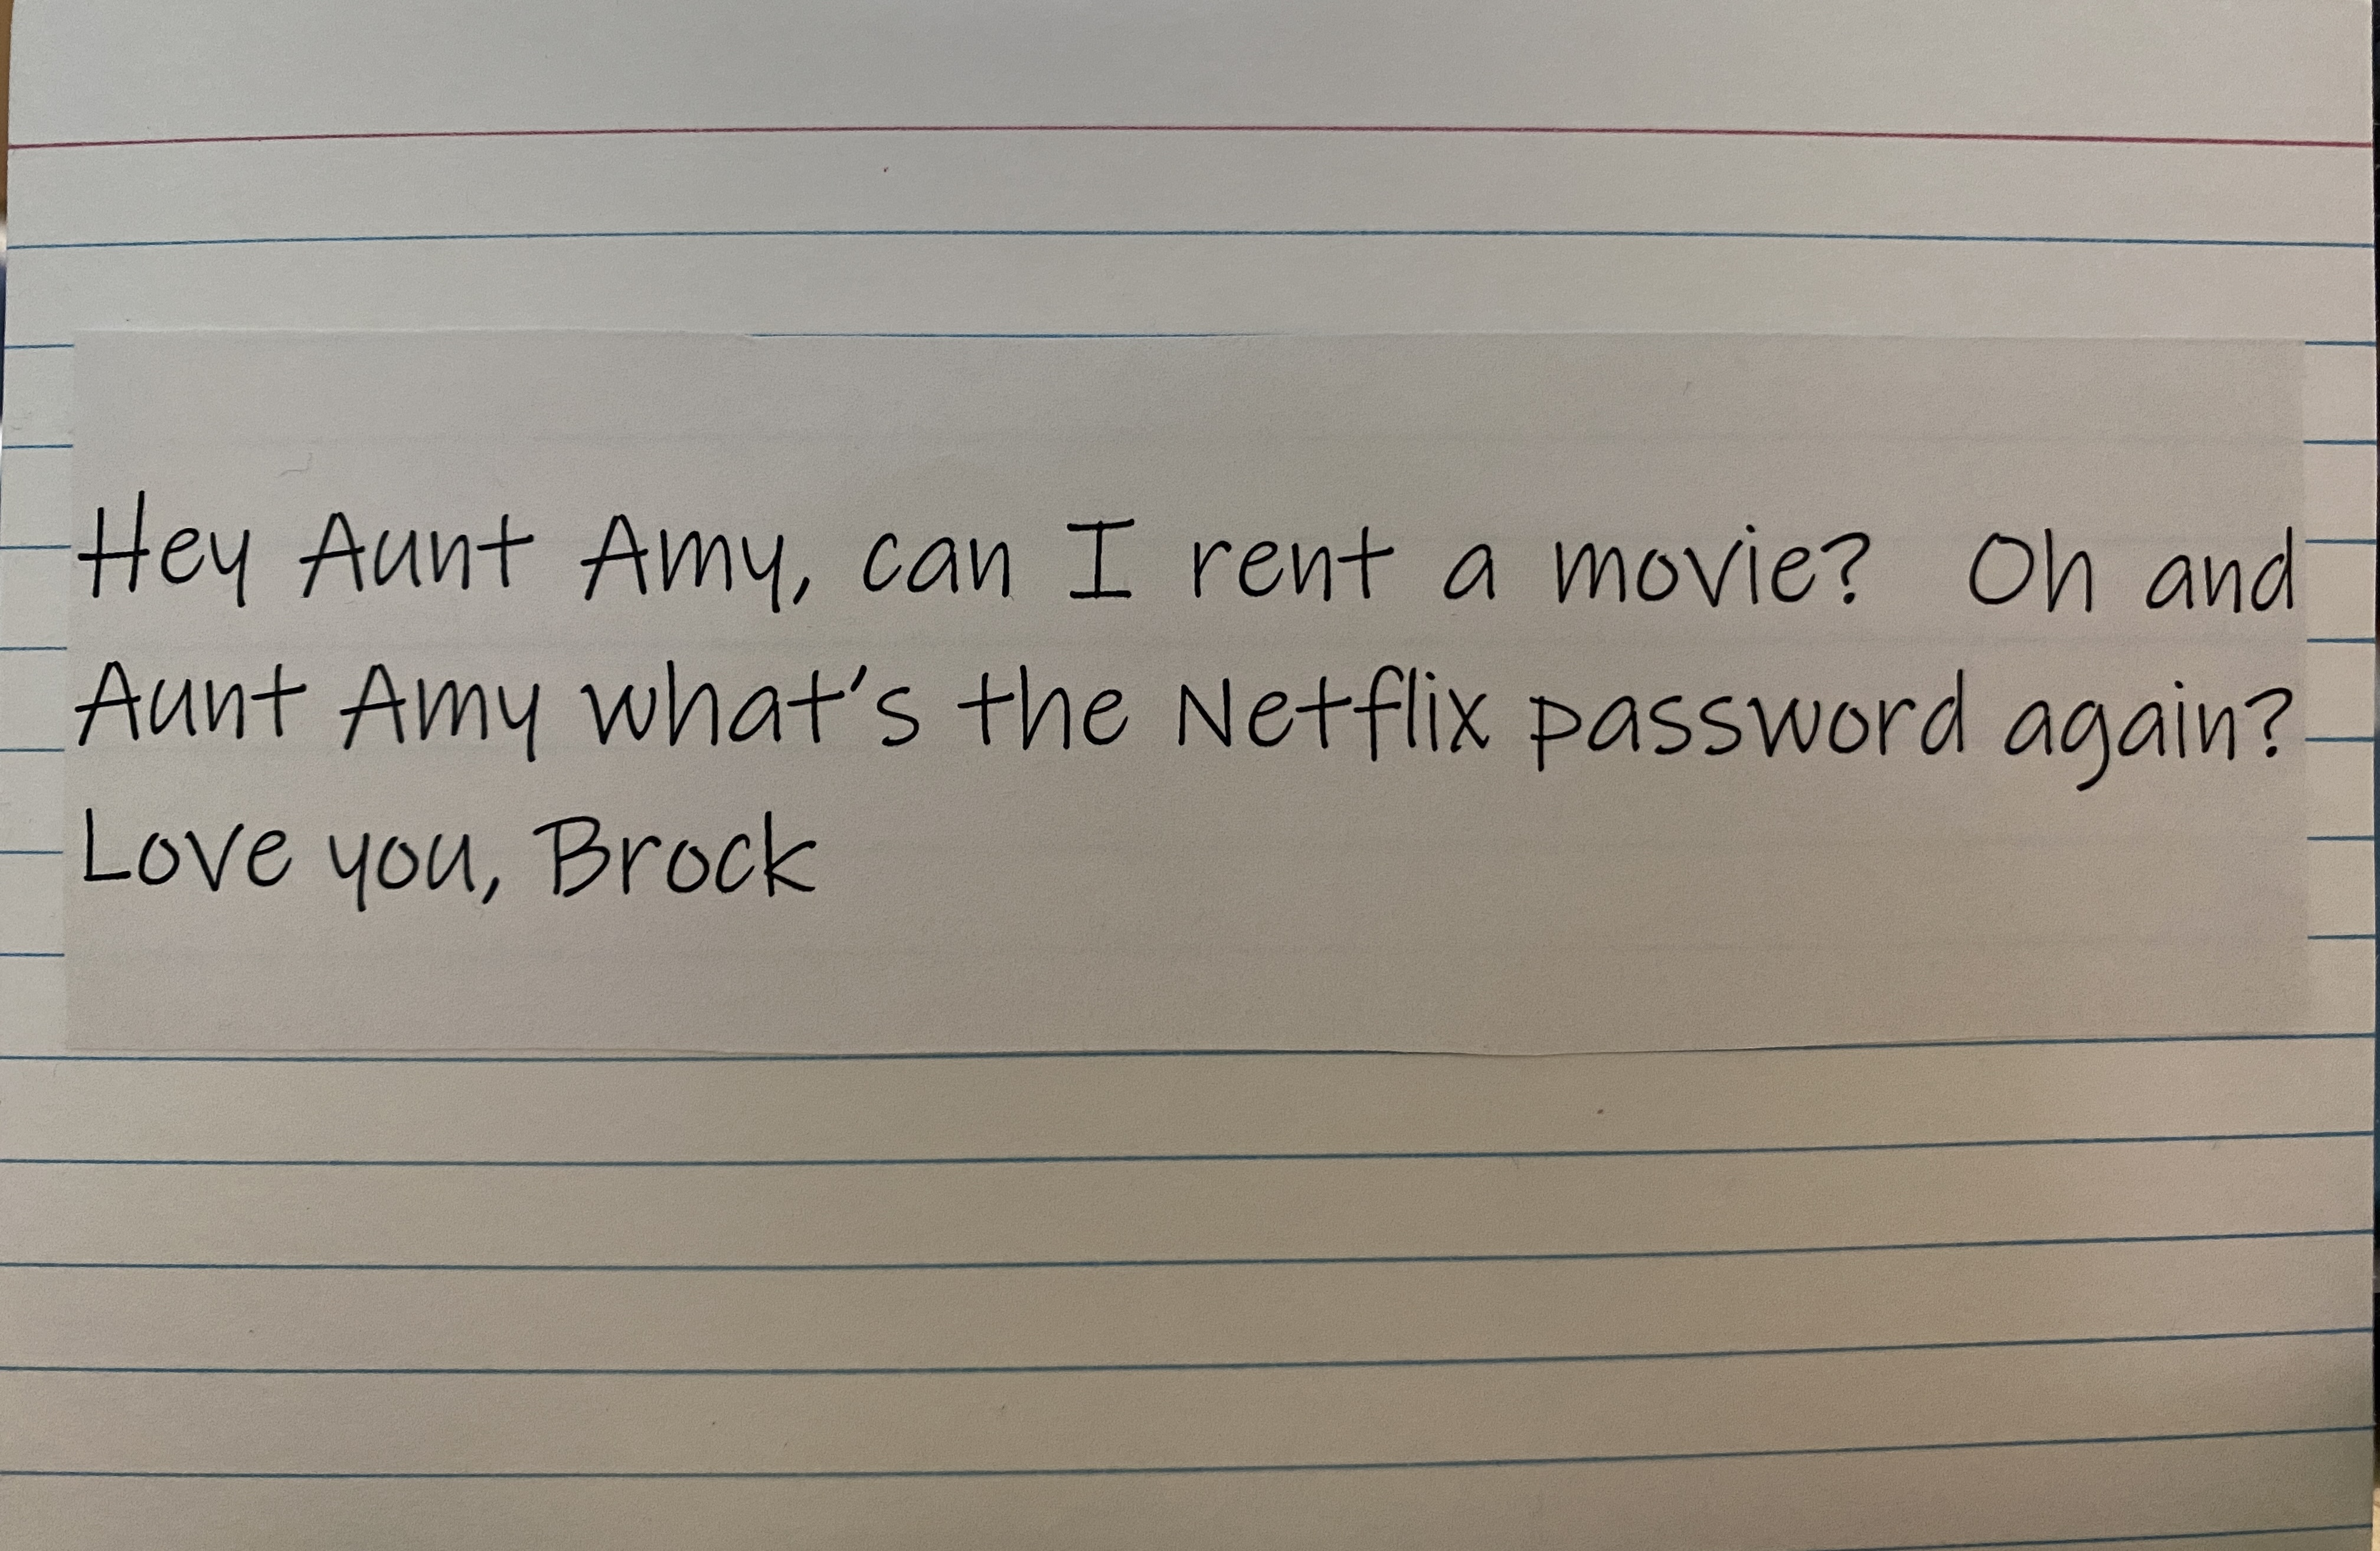 Hey Aunt Amy, can I rent a movie?  Oh and
Aunt Amy what's the Netflix password again?
Love you, Brock